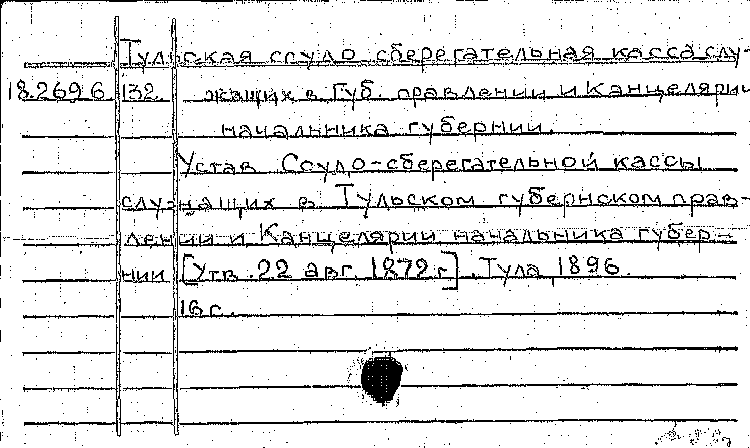 Тульская ссудо сберегательная касса слу-
18.269.6.132. жащих в Губ. правлении и Канцелярии
начальника губернии.
Устав Ссудо-сберегательной кассы
служащих в Тульском губернском прав-
лении и Канцелярии начальника губер-
нии [Утв. 22 авг. 1872 г.]. Тула, 1896.
16 с.